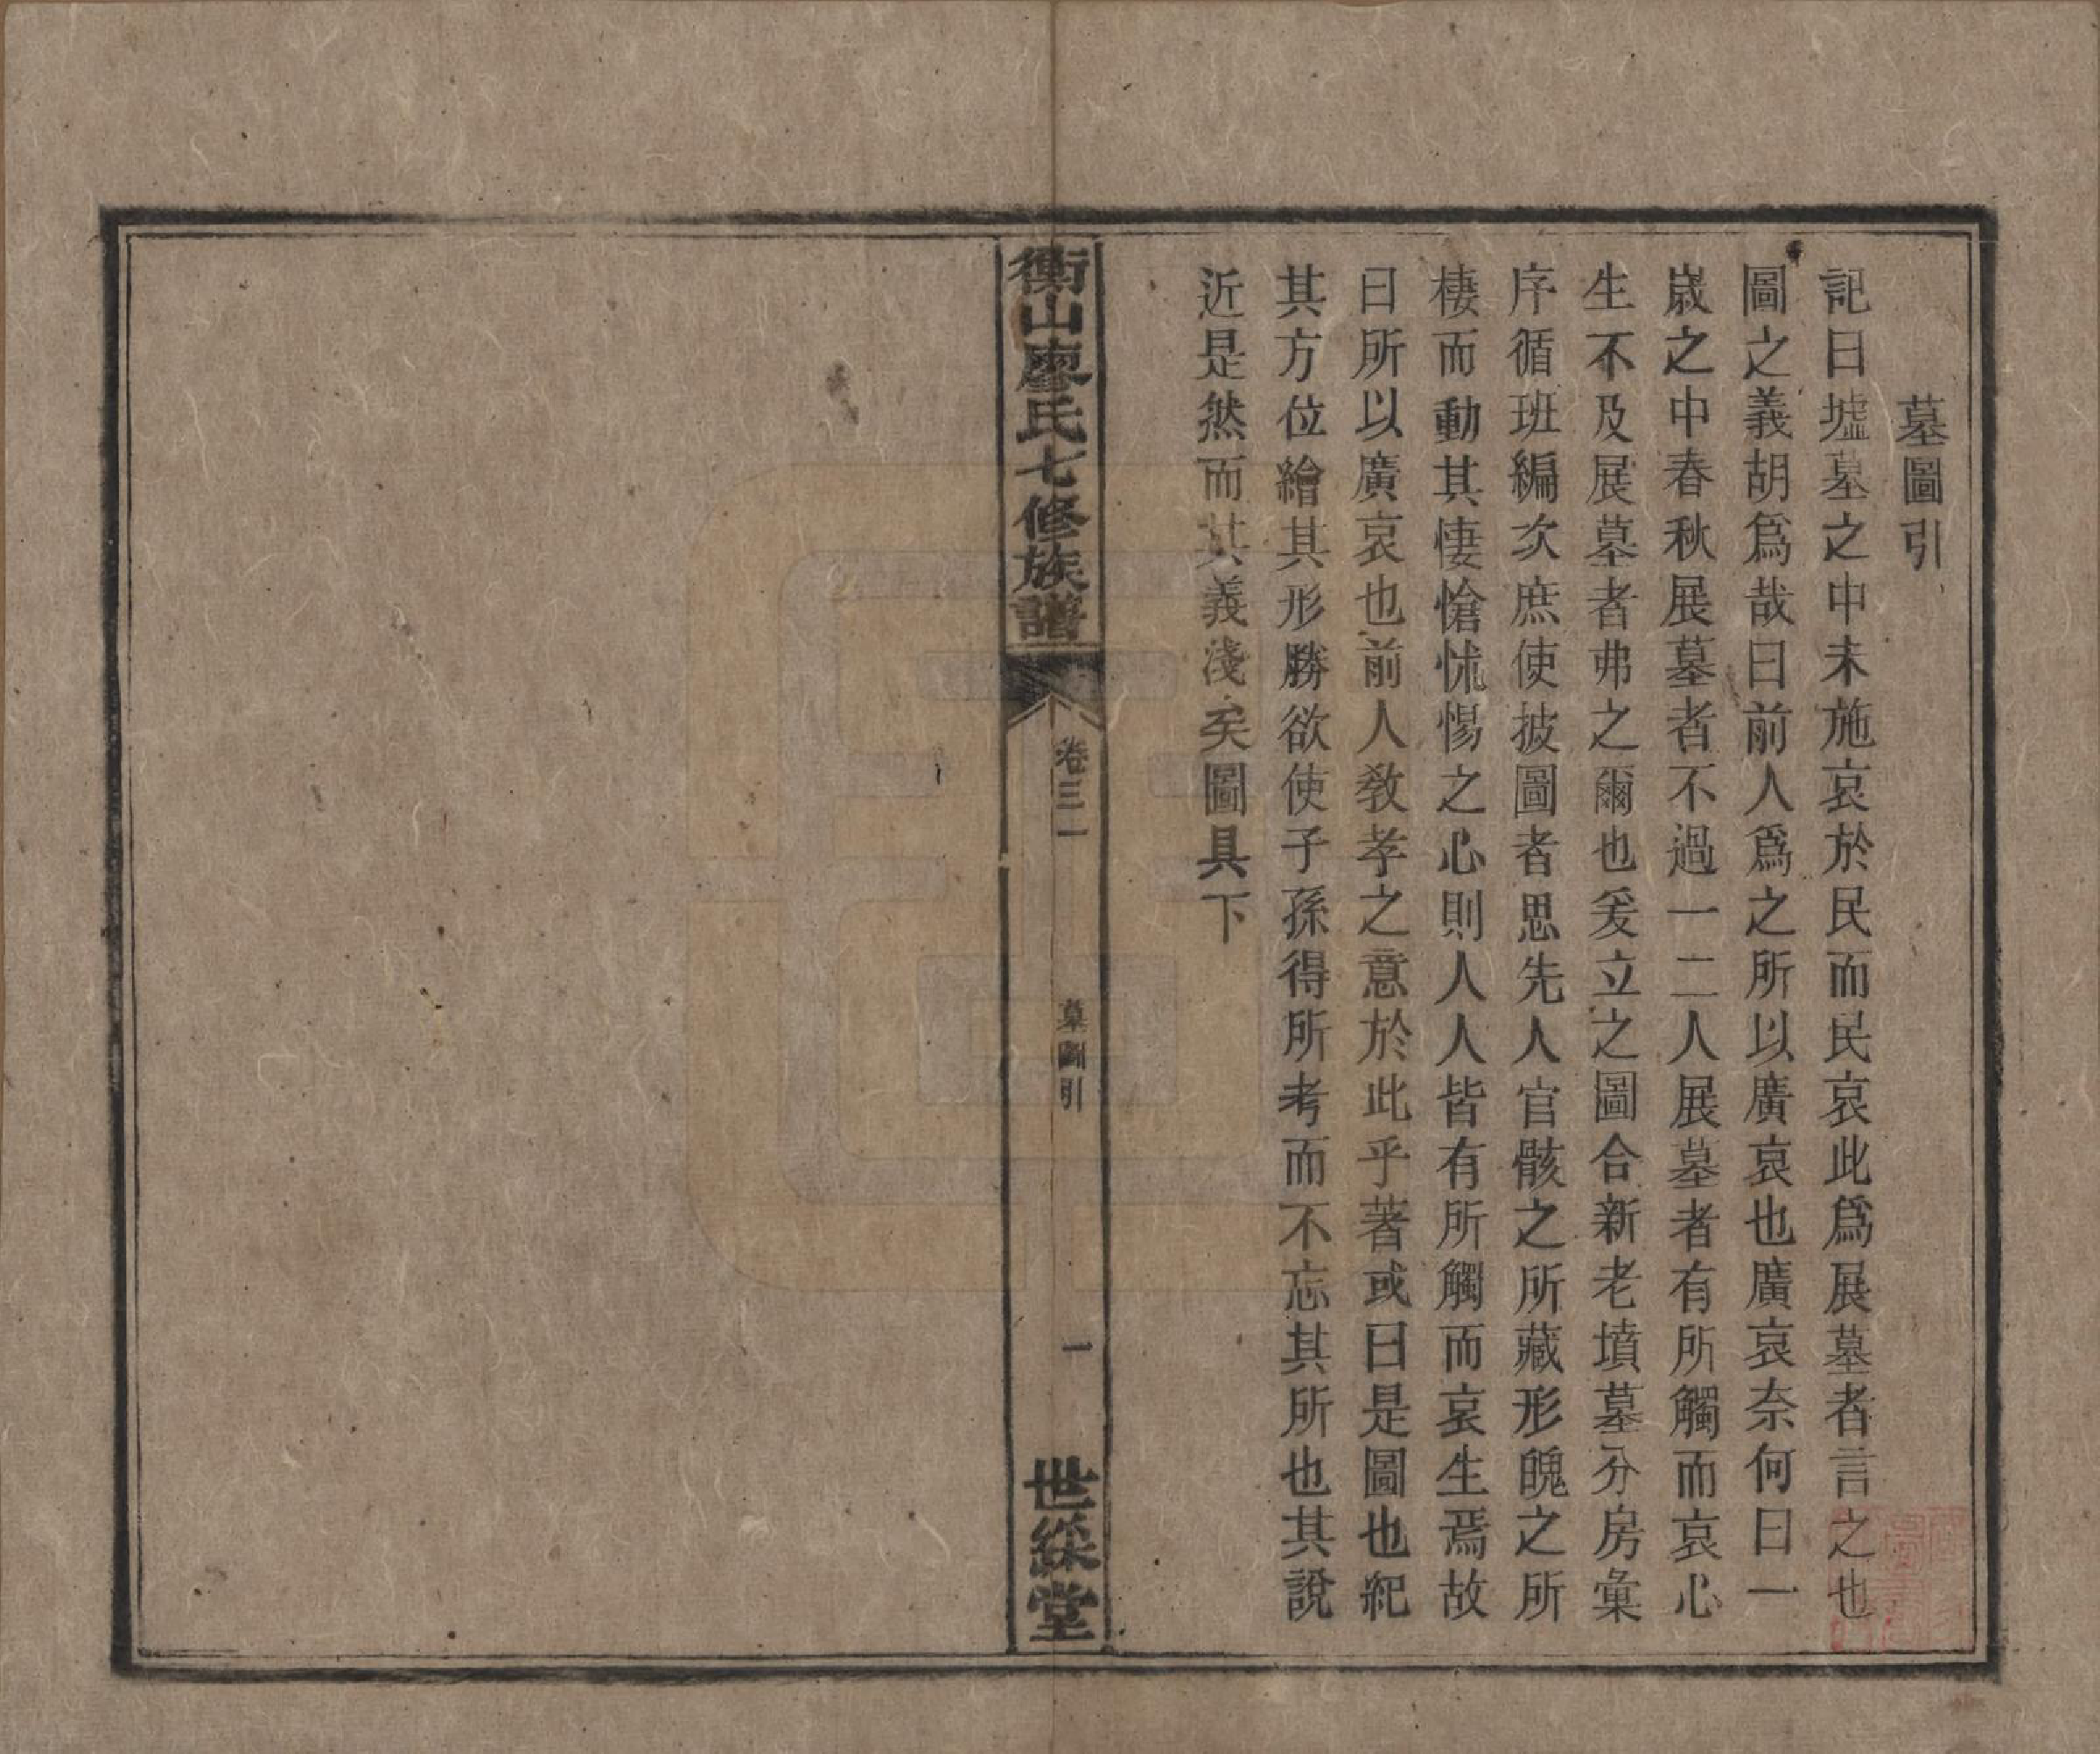 墓圖引
記曰墟墓之中未施哀於民而民哀此爲展墓者言之也
圖之義胡爲哉曰前人爲之所以廣哀也廣哀奈何曰一
歲之中春秋展墓者不過一二人展墓者有所觸而哀心
生不及展墓者弗之爾也爰立之圖合新老墳墓分房彙
序循班編次庶使披圖者思先人官骸之所藏形魄之所
棲而動其悽愴怵惕之心則人人皆有所觸而哀生焉故
曰所以廣哀也前人敎孝之意於此乎著或曰是圖也紀
其方位繪其形勝欲使子孫得所考而不忘其所也其說
近是然而其義淺矣圖具下
衡山廖氏七修族譜
卷三一
墓圖引
一
世綵堂